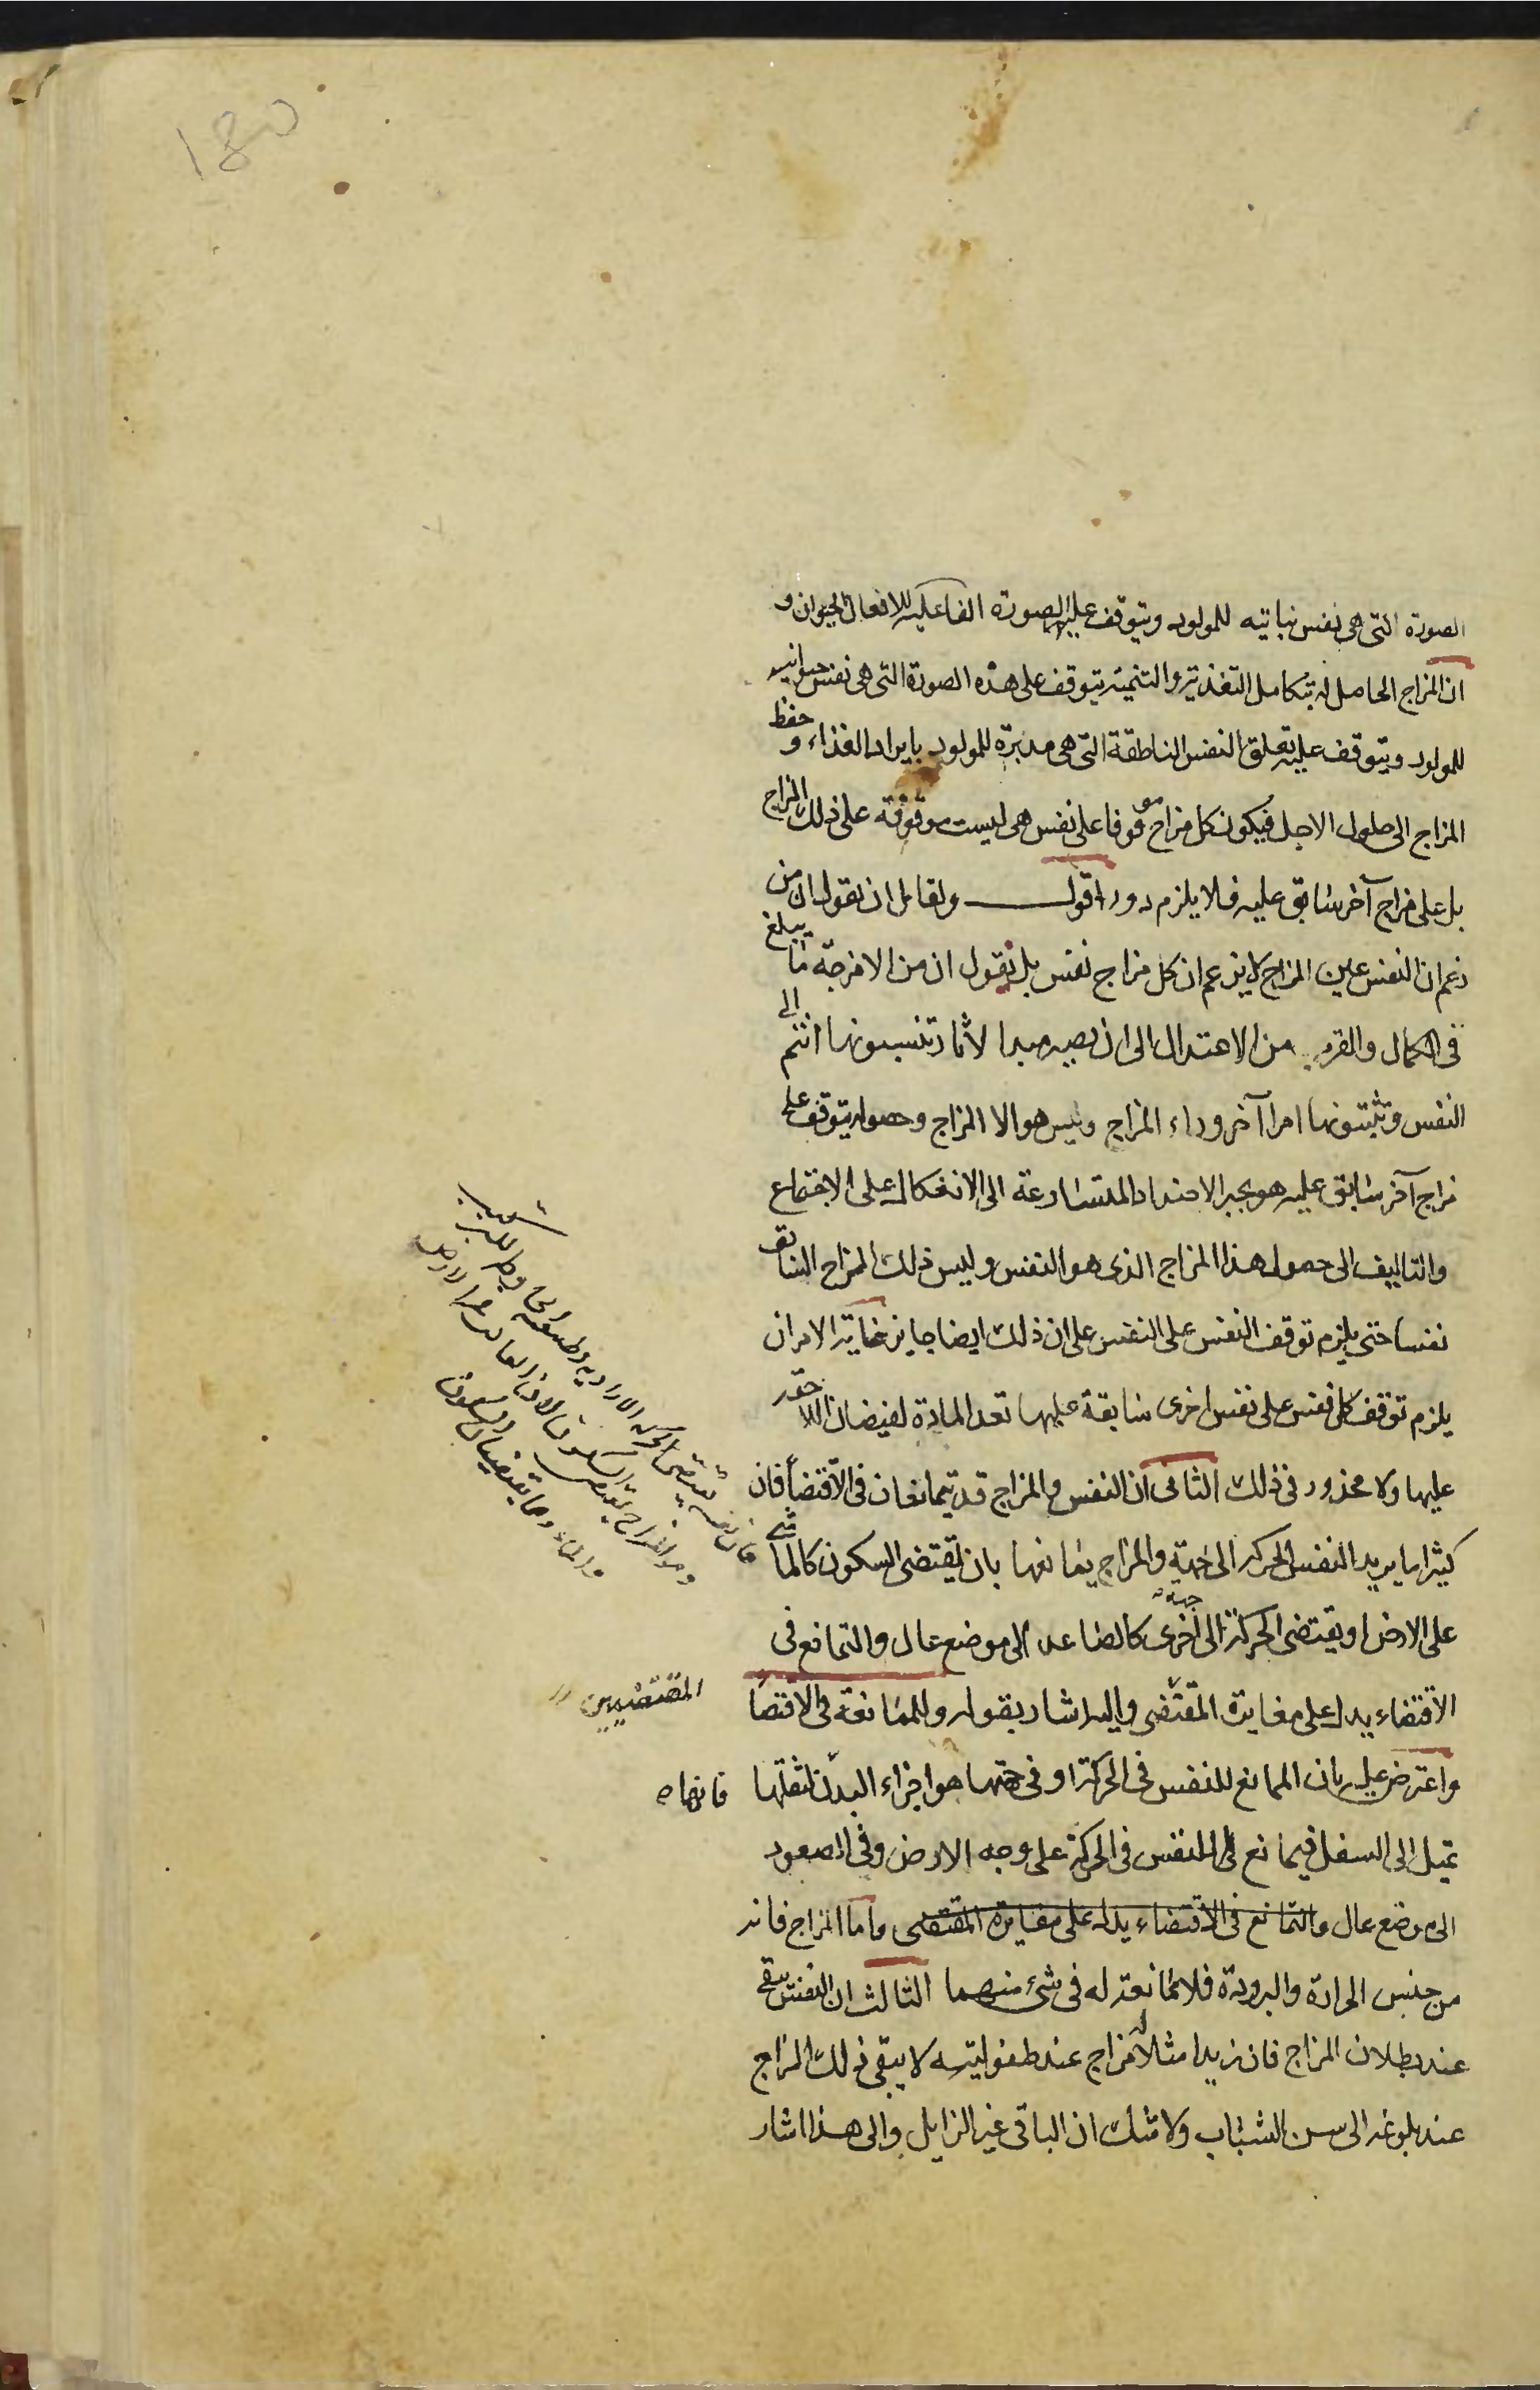 الصورة التى هى نفس نباتيه للمولود ويتوقف عليه الصورة الفاعليه للافعال الحيوان و
ان المزاج الحاصل له بتكامل التغذية والتنمية يتوقف على هذه الصورة التى هى نفس حيوانيه
للمولود ويتوقف عليه تعلق النفس الناطقة التى هى مدبرة للمولود بايراد الغذاء و حفظ
المزاج الى حلول الاجل فيكون كل مزاج موقوفا على نفس هى ليست موقوفة على ذلك المزاج
بل على مزاج آخر سابق عليه فلا يلزم دور اقول ولقائل ان يقول ان من
زعم ان النفس عين المزاج لا يزعم ان كل مزاج نفس بل نقول ان من الامزجة ما يبلغ
فى الكمال والقرب من الاعتدال الى ان يصير مبدا لآثار تنسبونها انتم الى
النفس وتثبتونها امرا آخر وراء المزاج وليس هو الا المزاج وحصوله يتوقف على
مزاج آخر سابق عليه هو يجبر الاضداد المتسارعة الى الانفكاك على الاجتماع
والتاليف الى حصول هذا المزاج الذى هو النفس وليس ذلك المزاج السابق
نفسا حتى يلزم توقف النفس على النفس على ان ذلك ايضا جايز غاية الامر ان
يلزم توقف كل نفس على نفس اخرى سابقة عليها تعد المادة لفيضان اللاحقة
عليها ولا محذور فى ذلك الثانى ان النفس والمزاج قد يتمانعان فى الاقتضاء فان
كثيرا ما يريد النفس الحركة الى جهة والمزاج يمانعها بان يقتضى السكون كالماشى
على الارض او يقتضى الحركة الى جهة اخرى كالصاعد الى موضع عال والتمانع فى
الاقتضاء يدل على مغايرة المقتضى واليه اشار بقوله وللممانعة فى الاقتضا
المقتضيين
واعترض عليه بان الممانع للنفس فى الحركة او فى جهتها هو اجزاء البدن لثقلها فانها
تميل الى السفل فيمانع النفس فى الحركة على وجه الارض وفى الصعود
الى موضع عال والتمانع فى الاقتضاء يدل على مغايرة المقتضى واما المزاج فانه
من جنس الحرارة والبرودة فلا ممانعة له فى شئ منهما الثالث ان النفس تبقى
عند بطلان المزاج فان زيدا مثلا له مزاج عند طفوليته لا يبقى ذلك المزاج
عند بلوغه الى سن الشباب ولا شك ان الباقى غير الزايل والى هذا اشار